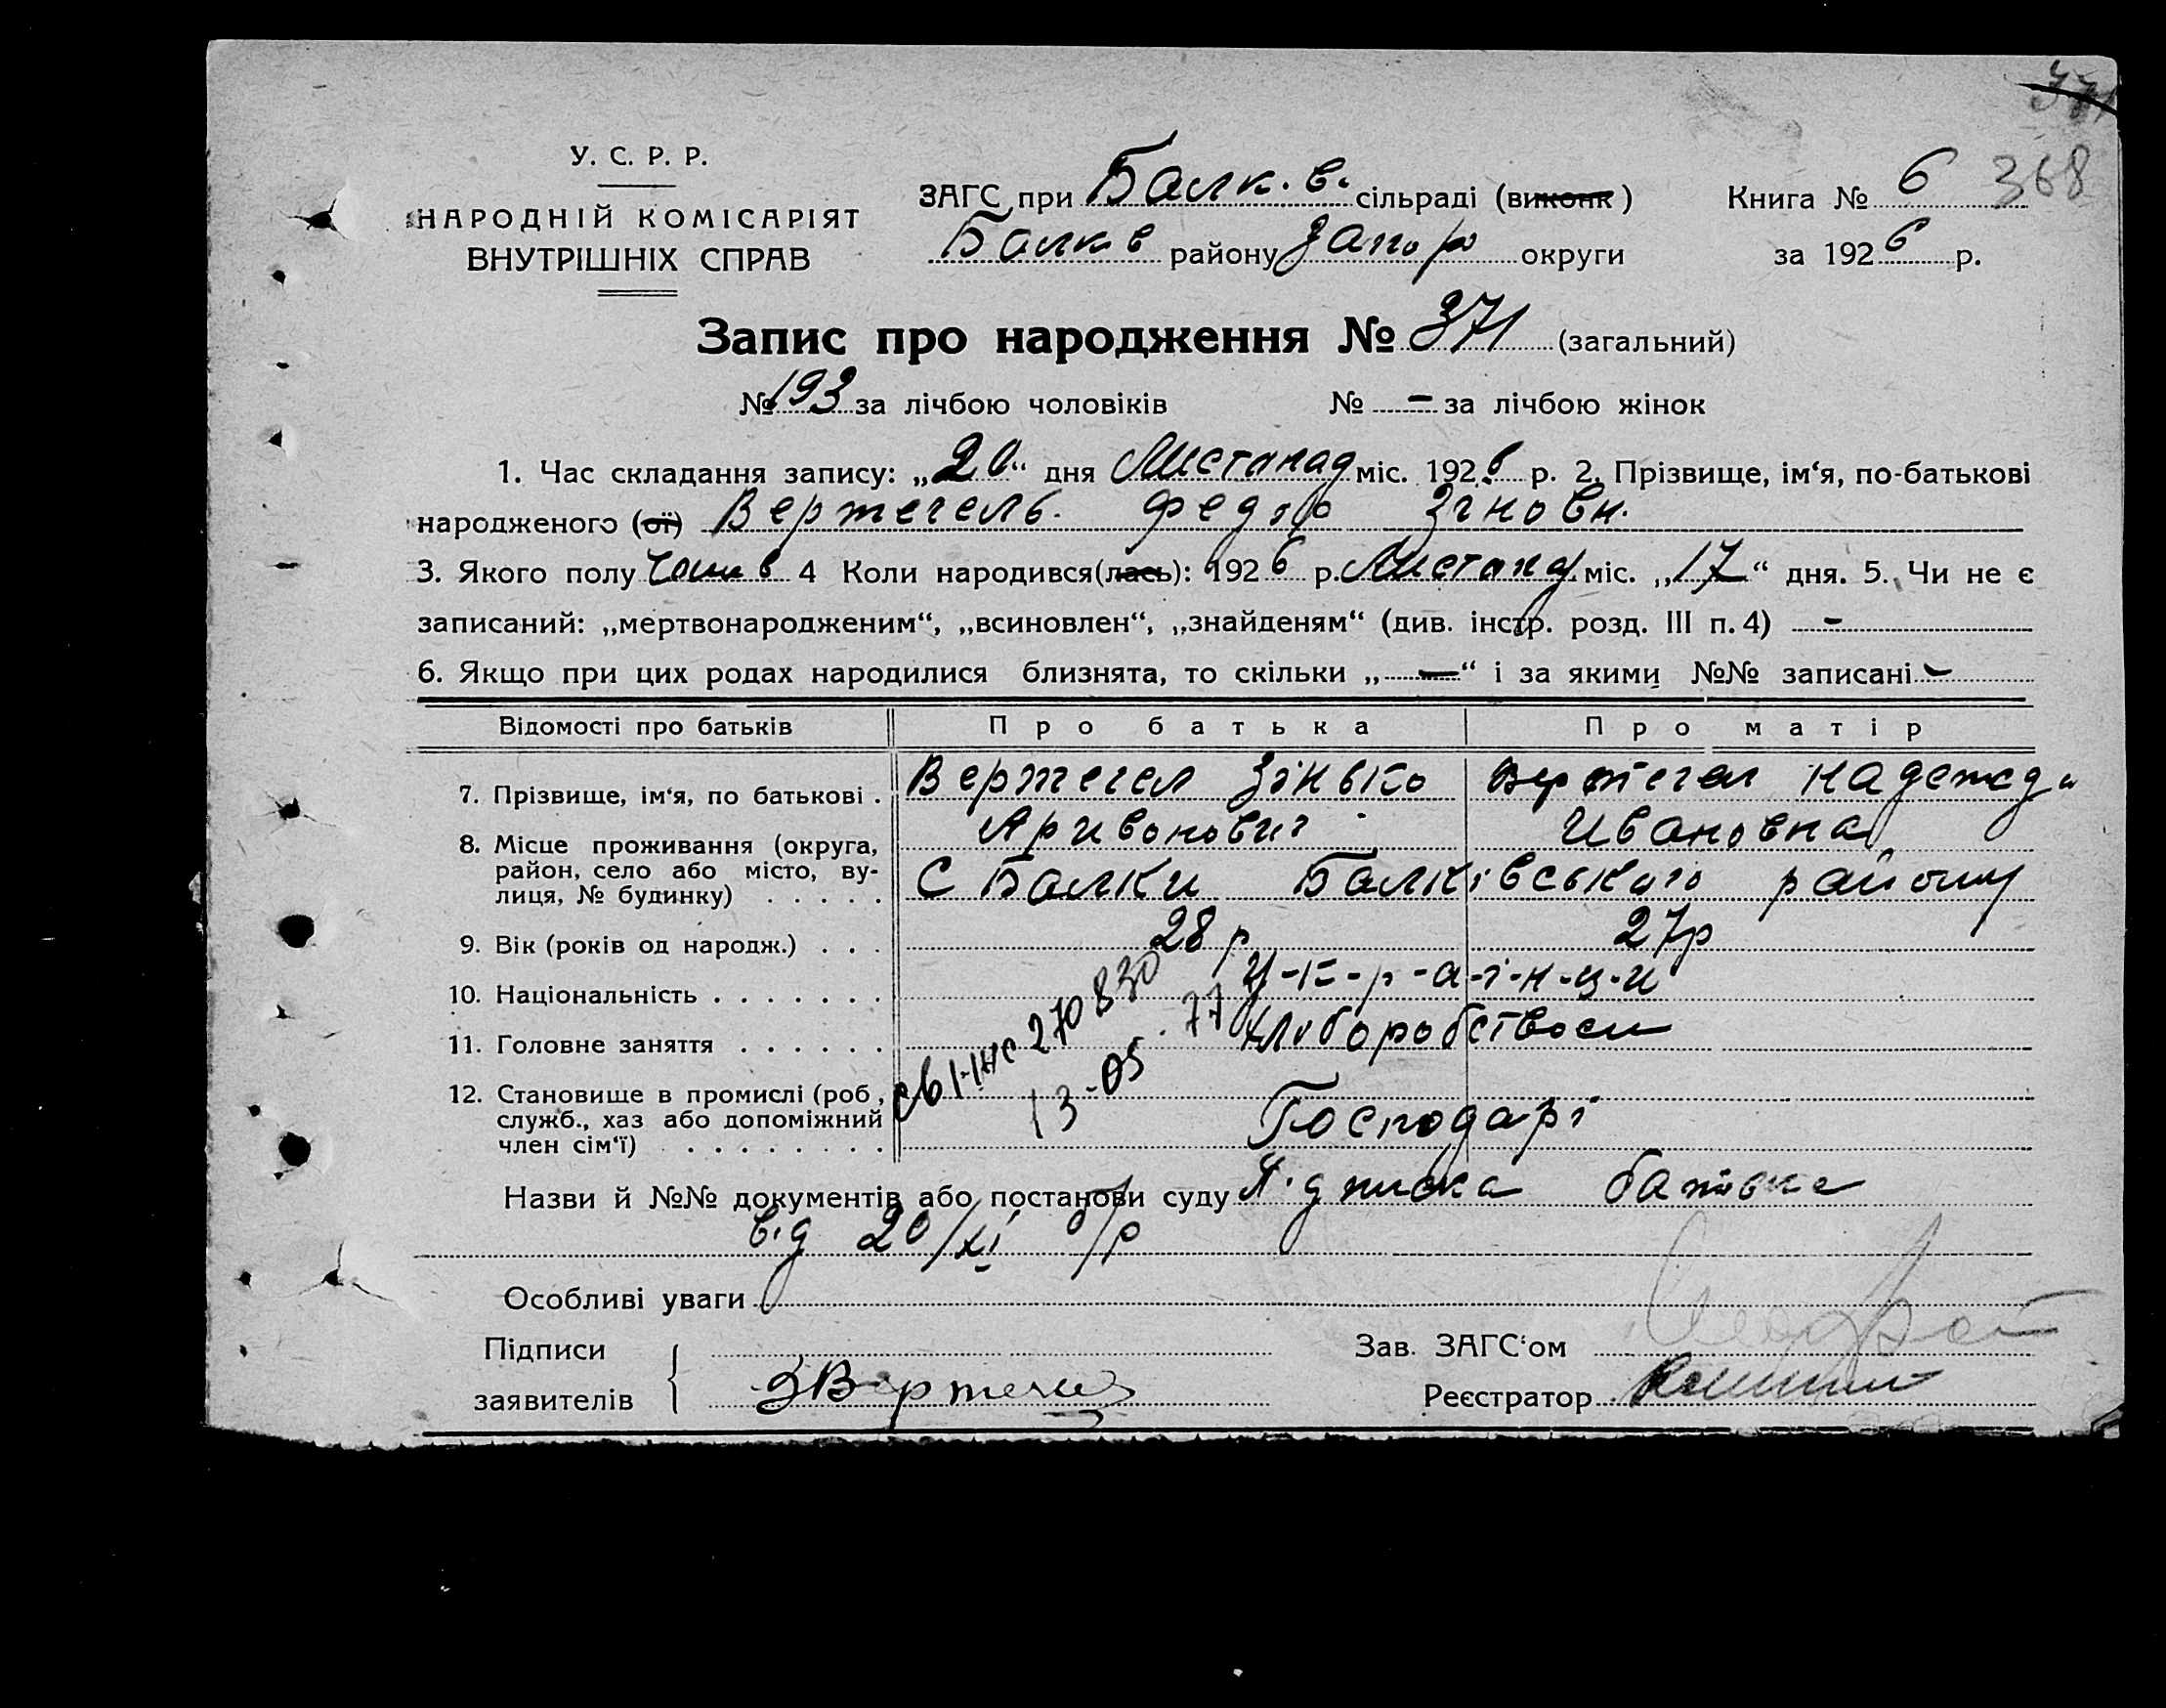 371
У. С. Р. Р.
НАРОДНІЙ КОМІСАРІЯТ
ВНУТРІШНІХ СПРАВ
ЗАГС при Балк. в. сільраді (виконк)
Балк в району Запор округи
Книга № 6 368
за 1926 р.
Запис про народження № 371 (загальний)
№ 193 за лічбою чоловіків № – за лічбою жінок
1. Час складання запису: „20“ дня Листапад міс. 1926 р. 2. Прізвище, ім‘я, по-батькові
народженого (ої) Вертегель Федор Зіновн.
3. Якого полу 4 Коли народився(лась): 1926 р. Листапад міс. „17“ дня. 5. Чи не є
записаний: „мертвонародженим“, „всиновлен“, „знайденям“ (див. інстр. розд. III п. 4) –
6. Якщо при цих родах народилися близнята, то скільки „—“ і за якими №№ записані –
Відомості про батьків Про батька Про матір
7. Прізвище, ім‘я, по батькові . Вертегел Зінько Вертегел Надежда
Аривонович Ивановна
8. Місце проживання (округа,
район, село або місто, ву-
лиця, № будинку) . . . . . С Балки Балківського району
9. Вік (років од народж.) . . . 28 р 27р
10. Національність . . . . . . . У-к-р-а-ї-н-ц-и
11. Головне заняття . . . . . . Хліборобством
270830
13-05-77
12. Становище в промислі (роб,
служб., хаз або допоміжний
член сім‘ї) . . . . . . . . Господарі
Назви й №№ документів або постанови суду Підписка батька
від 20/XI б/р
Особливі уваги
Підписи
заявителів ЗВертегел
Зав. ЗАГС‘ом
Реєстратор